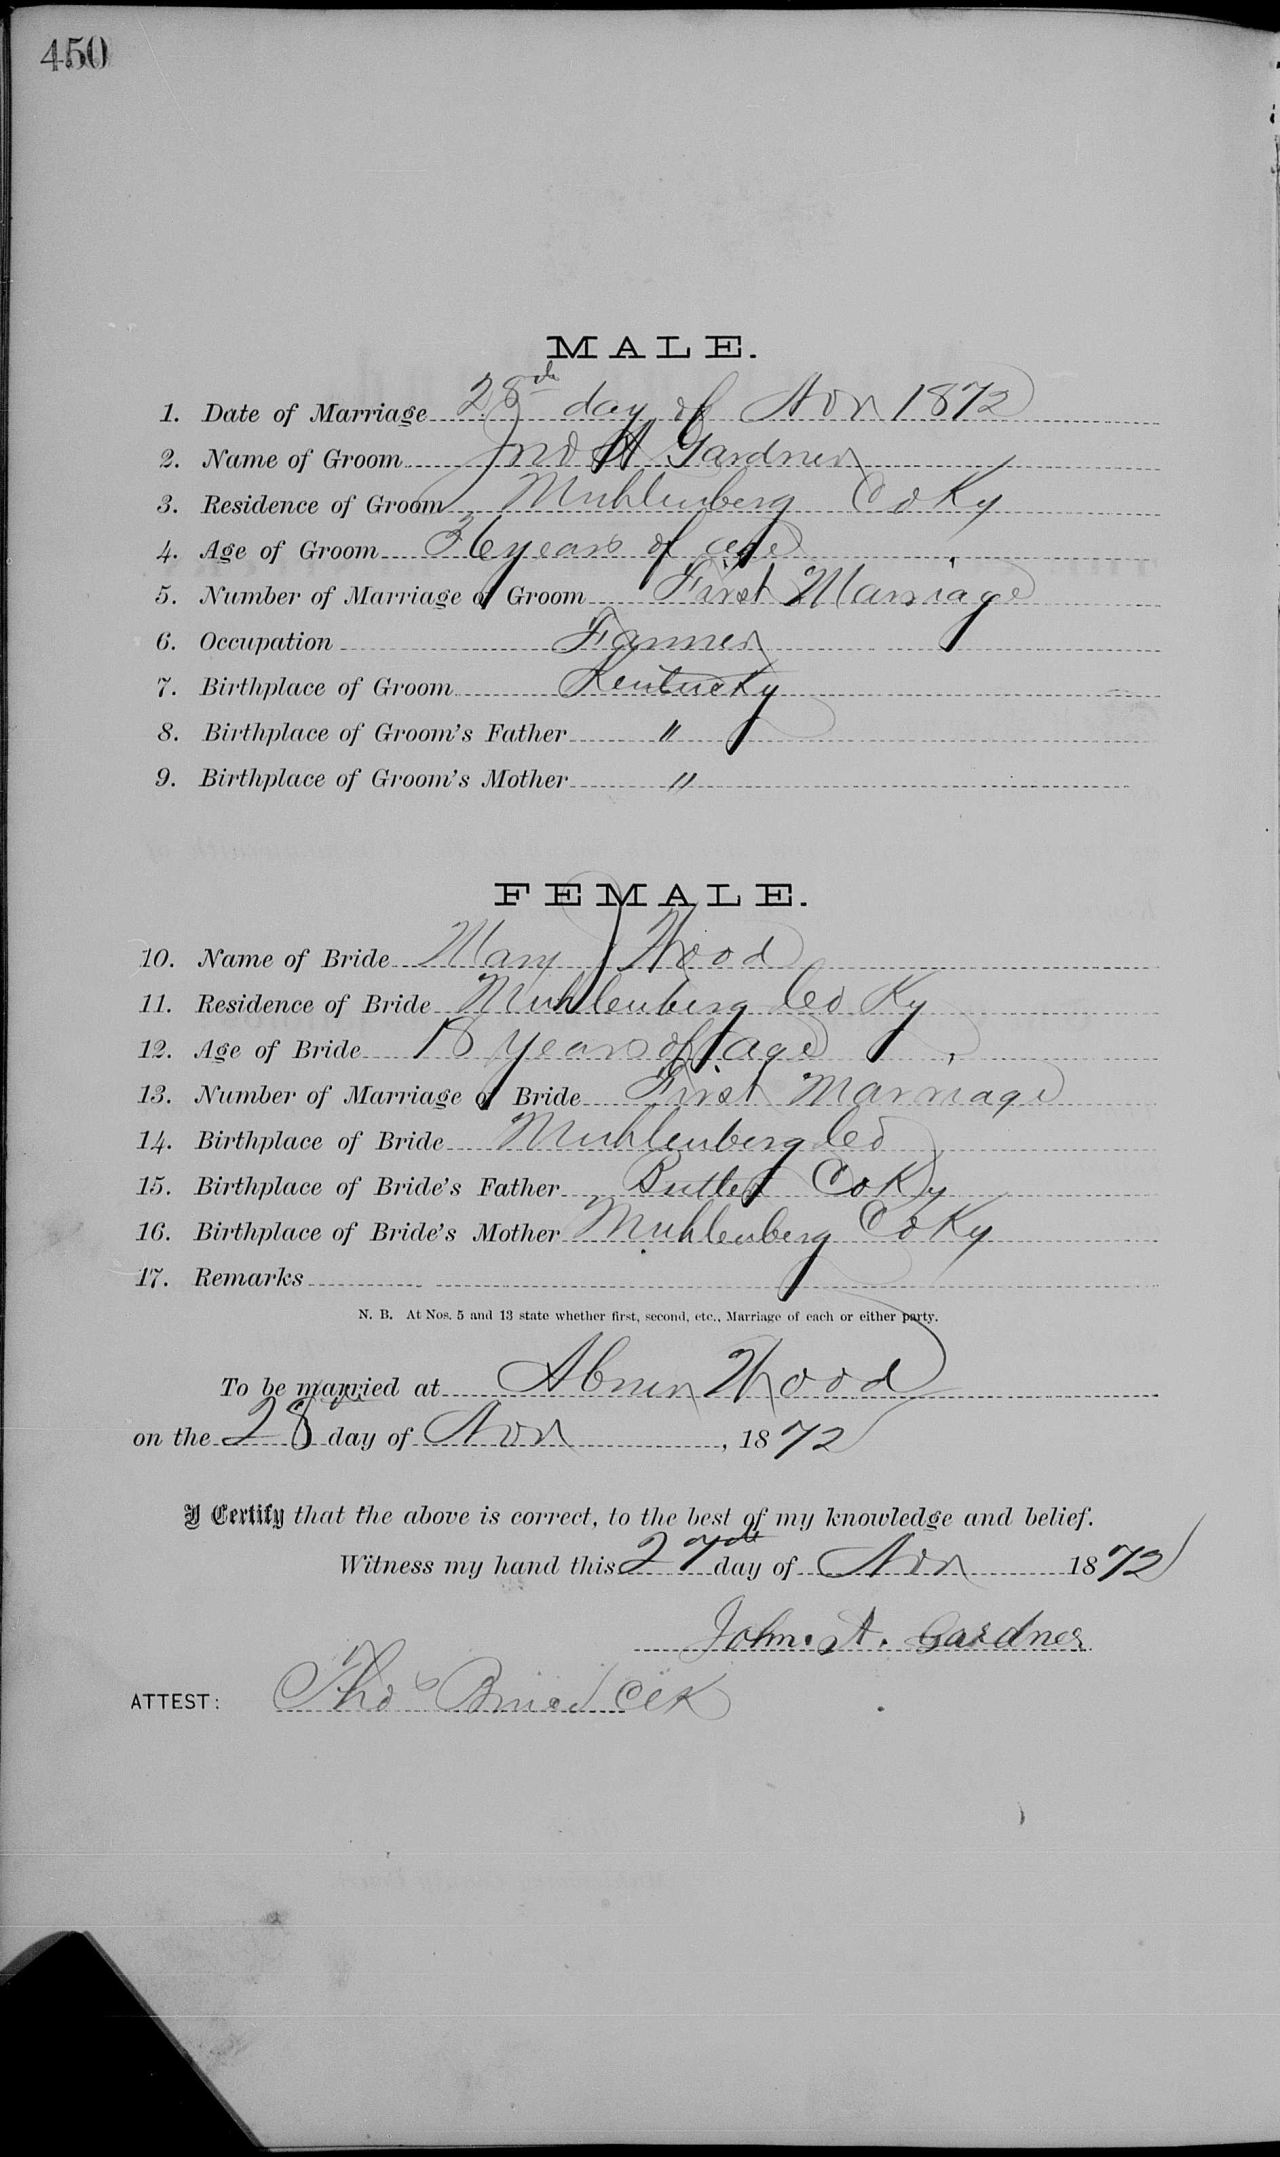 450
MALE.
1. Date of Marriage 28th day of Nov 1872
2. Name of Groom Jno A Gardner
3. Residence of Groom Muhlenberg Co Ky
4. Age of Groom 36 years of age
5. Number of Marriage of Groom First Marriage
6. Occupation Farmer
7. Birthplace of Groom Kentucky
8. Birthplace of Groom's Father "
9. Birthplace of Groom's Mother "
FEMALE.
10. Name of Bride Mary J Wood
11. Residence of Bride Muhlenberg Co Ky
12. Age of Bride 18 years of age
13. Number of Marriage of Bride First Marriage
14. Birthplace of Bride Muhlenberg Co
15. Birthplace of Bride's Father Butler Co Ky
16. Birthplace of Bride's Mother Muhlenberg Co Ky
17. Remarks
N. B. At Nos. 5 and 13 state whether first, second, etc., Marriage of each or either party.
To be married at Abner Wood
on the 28th day of Nov, 1872
I Certify that the above is correct, to the best of my knowledge and belief.
Witness my hand this 27th day of Nov 1872
John. A. Gardner
ATTEST: Thos Clk